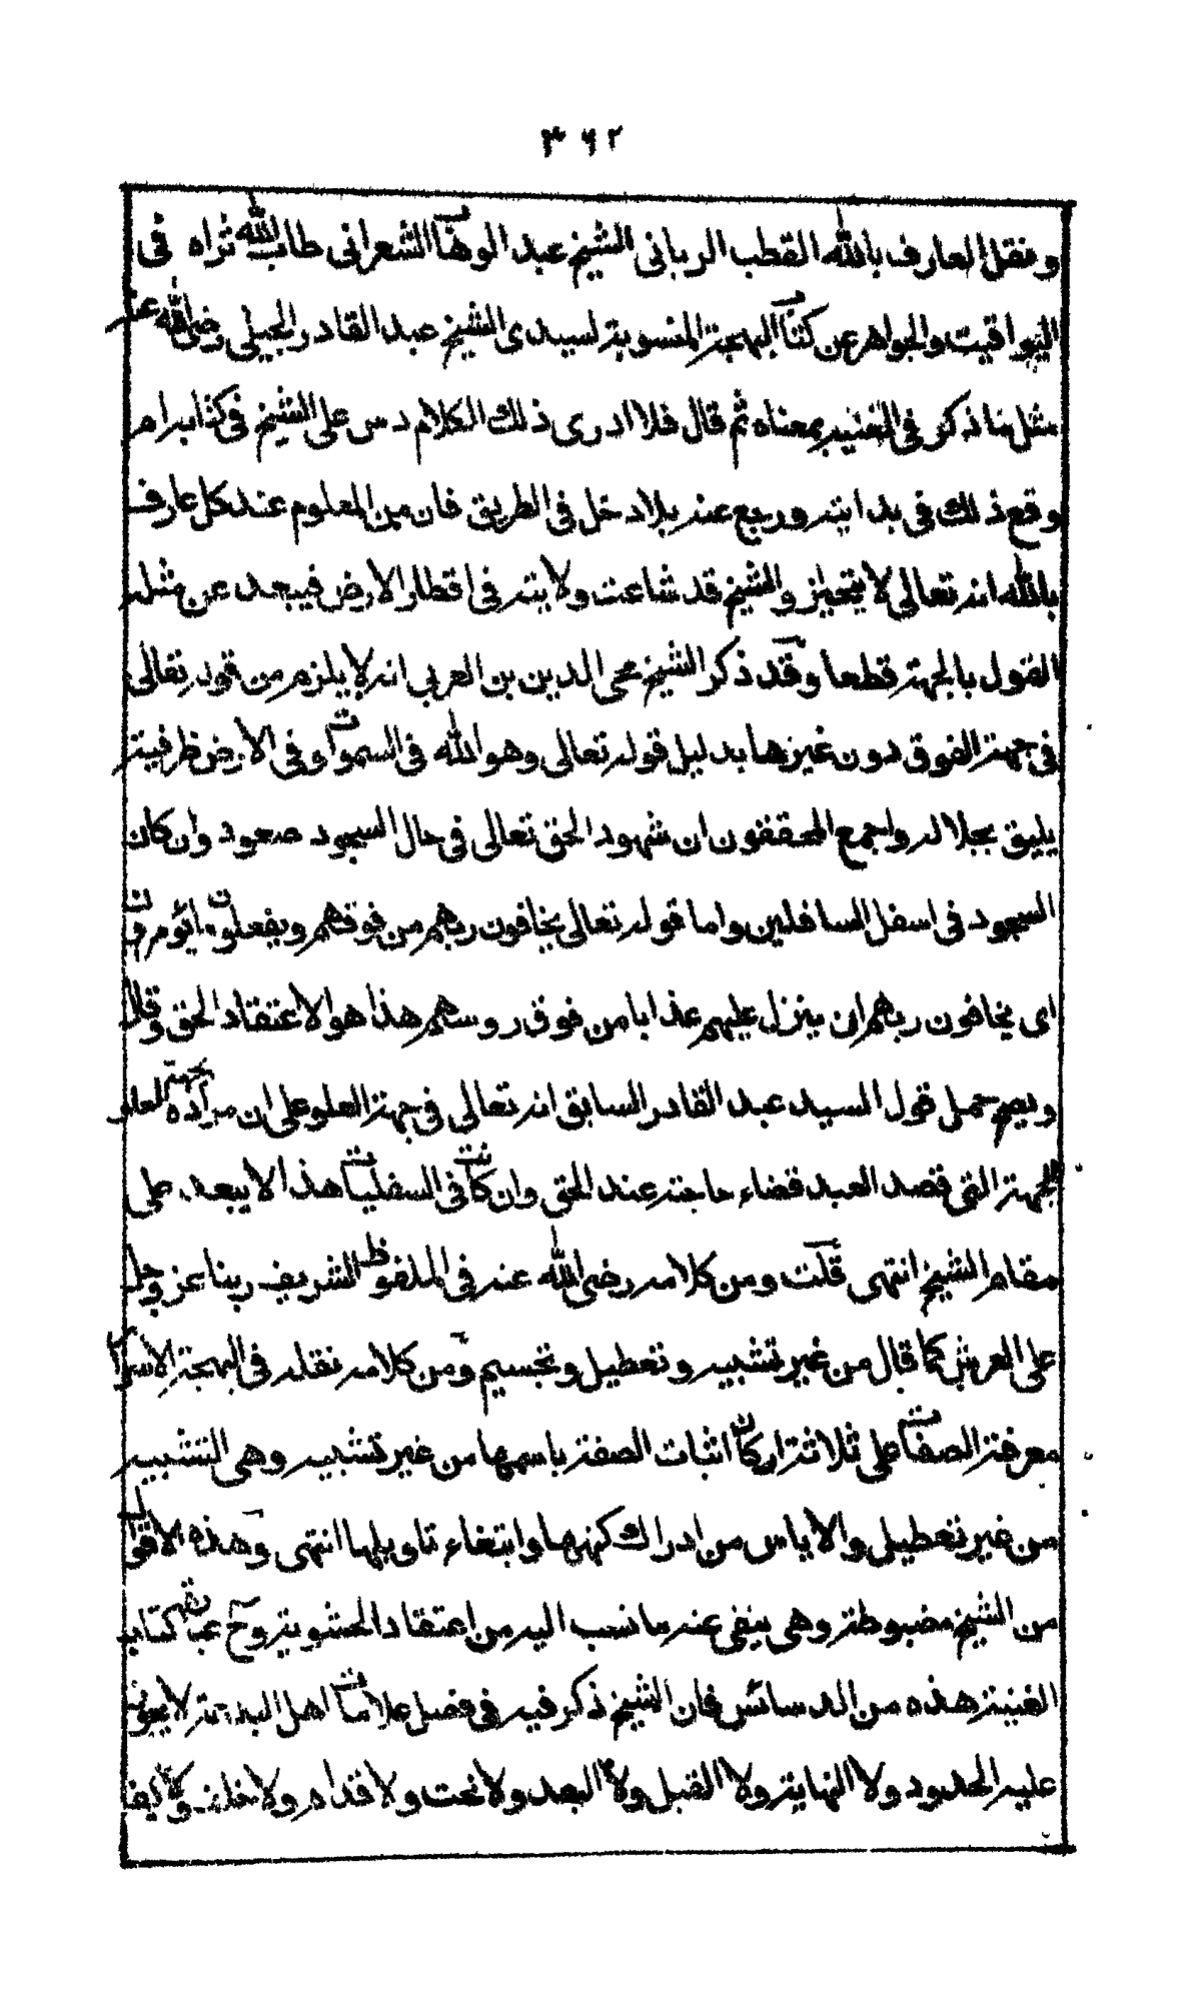 ٣٦٢
ونقل العارف بالله القطب الربانى الشيخ عبد الوهاب الشعرانى طاب الله ثراه فى
اليواقيت والجواهر عن كتاب البهجة المنسوبة لسيدى الشيخ عبد القادر الجيلى رضى الله عنه
مثل ما ذكر فى الغنية بمعناه ثم قال فلا ادرى ذلك الكلام دس على الشيخ فى كتابه ام
وقع ذلك فى بدايته ورجع عنه بلا دخل فى الطريق فان من المعلوم عند كل عارف
بالله انه تعالى لا يتحيز والشيخ قد شاعت ولايته فى اقطار الارض فيبعد عن مثله
القول بالجهة قطعا وقد ذكر الشيخ محى الدين بن العربي انه لا يلزم من قوله تعالى
فى جهة الفوق دون غيرها بدليل قوله تعالى وهو الله فى السموات وفى الارض ظرفية
يليق بجلاله واجمع المحققون ان شهود الحق تعالى فى حال السجود صعود وان كان
السجود فى اسفل السافلين واما قوله تعالى يخافون ربهم من فوقهم ويفعلون ما يؤمرون
اى يخافون ربهم ان ينزل عليهم عذابا من فوق روسهم هذا هو الاعتقاد الحق وقال
ويصح حمل قول السيد عبد القادر السابق انه تعالى فى جهة العلو على ان مراده بجهة العلو
الجهة التى قصد العبد قضاء حاجته عند الحق وان كانت فى السفليات هذا لا يبعد على
مقام الشيخ انتهى قلت ومن كلامه رضى الله عنه فى الملفوظ الشريف ربنا عز وجل
على العرش كما قال من غير تشبيه وتعطيل وتجسيم ومن كلامه نقله فى البهجة الاسرار
معرفة الصفات على ثلاثة اركان اثبات الصفة باسمها من غير تشبيه وهى التشبيه
من غير تعطيل والاياس من ادراك كنهها وابتغاء تاويلها انتهى وهذه الاقوال
من الشيخ مضبوطة وهى ينفى عنه ما نسب اليه من اعتقاد الحشوية وح كتابه
الغنية هذه من الدسائس فان الشيخ ذكر فيه فى فصل علامات اهل البدعة لا يجوز
عليه الحدود ولا النهاية ولا القبل ولا البعد ولا تحت ولا قدام ولا خلف ولا كيف